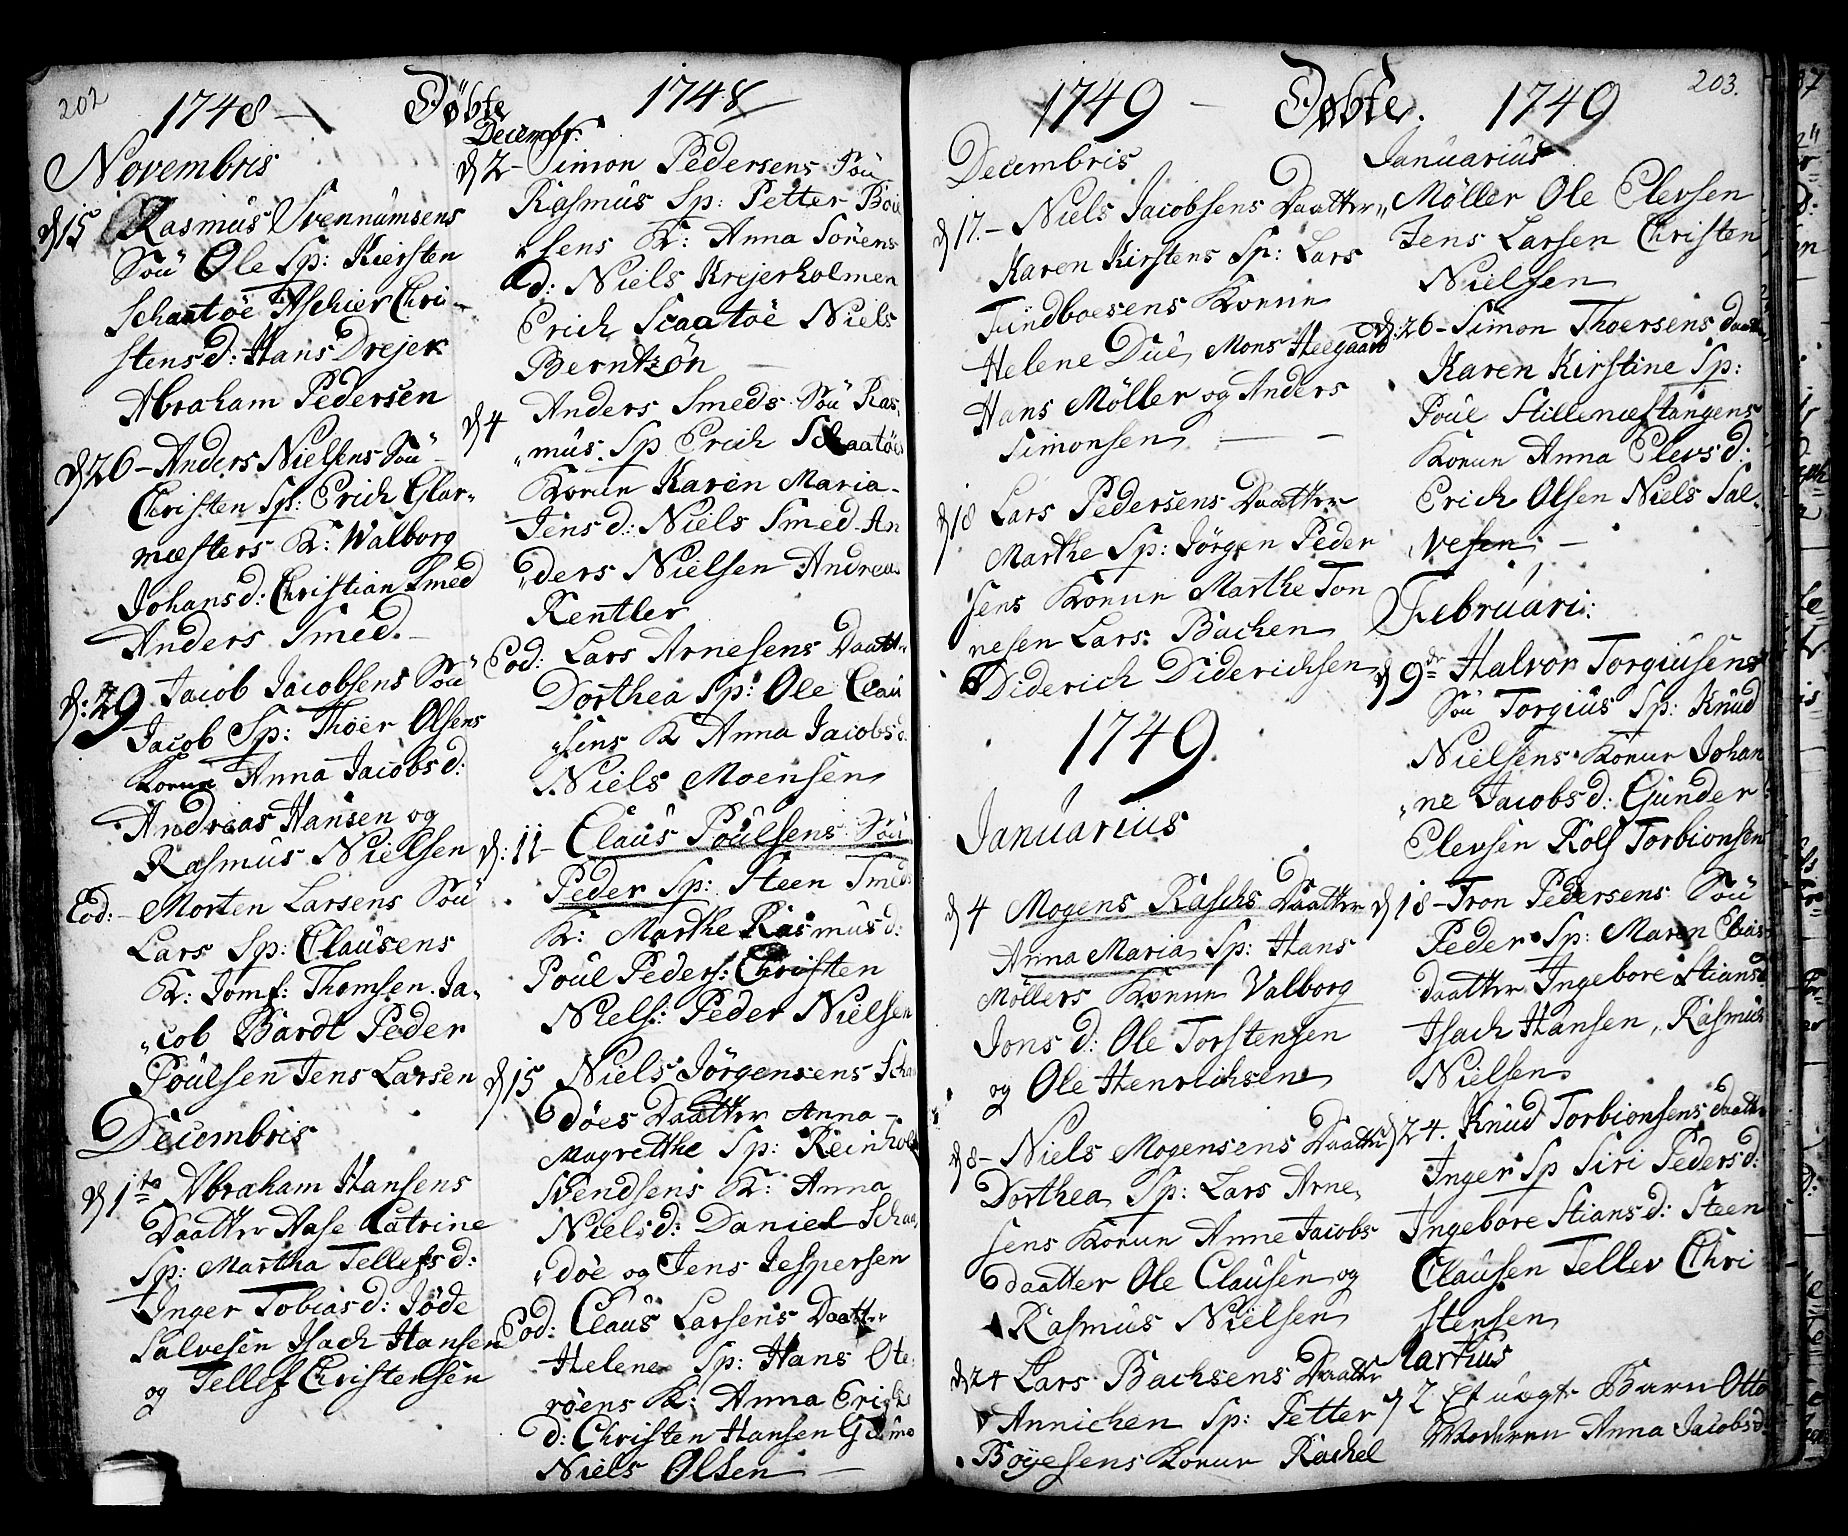 202
1748 — Döbte 1748
Novembris
d 15 Rasmus Svennumsens
Sön Ole Sp: Kiersten
Schaatöe Aschier Chri-
stensd: Hans Drejer
Abraham Pedersen
d 26 - Anders Nielsens Sön
Christen Sp: Erich Glar-
mesters K: Walborg
Johansd: Christian Smed
Anders Smed. -
d: 29 Jacob Jacobsens Sön
Jacob Sp: Thoer Olsens
Konun Anna Jacobsd:
Andreas Hansen og
Rasmus Nielsen
Eod: - Morten Larsens Sön
Lars Sp: Clausens
K: Jomf: Thomsen Ja-
cob Bardt Peder
Poulsen Jens Larsen
Decembris
d 1te Abraham Hansens
Daatter Aase Catrine
Sp: Martha Tellefsd:
Inger Tobiasd: Jöde
Salvesen Isach Hansen
og Tellef Christensen
Decembr:
d 2 - Simon Pedersens Sön
Rasmus Sp: Petter Böie
sens K: Anna Sörens
d: Niels Krejerholmen
Erich Scaatöe Niels
Berntzön —
d 4 Anders Smeds Sön Ras-
mus Sp Erich Schaatöes
Konun Karen Maria
Jensd: Niels Smed An
ders Nielsen Andreas
Rentler
Eod: Lars Arnesens Daatter
Dorthea Sp: Ole Clau
sens K Anna Jacobsd
Niels Moensen
d: 11 - Claus Poulsens Sön
Peder Sp: Steen Smeds
K: Marthe Rasmusd:
Poul Peders: Christen
Niels: Peder Nielsen
d 15 Niels Jörgensens Scha
döes Daatter Anna
Magrethe Sp: Reinholt
Svendsens K: Anna
Nielsd: Daniel Schaa-
döe og Jens Jespersen
Eod: Claus Larsens Daatter
Helene Sp: Hans Ote-
röens K: Anna Erichs
d: Christen Hansen
Niels Olsen —
1749 — Döbte. 1749
203.
Decembris
d 17. - Niels Jacobsens Daatter
Karen Kirstens Sp: Lars
Tundboesens Konun
Helene Due, Mons Heegaard
Hans Möller og Anders
Simonsen — —
d 18 Lars Pedersens Daatter
Marthe Sp: Jörgen Peder
sens Konun Marthe Ton
nesen Lars Bachen
Diderich Diderichsen
1749.
Januarius
d 4 Mogens Raschs Daatter
Anna Maria Sp: Hans
Möllers Konun Valborg
Jonsd: Ole Torstensen
og Ole Henrichsen
d 8 - Niels Mogensens Daatter
Dorthea Sp: Lars Arne-
sens Konun Anne Jacobs
daatter Ole Clausen og
Rasmus Nielsen
d 24 Lars Bachsens Daatter
Annichen Sp: Petter
Böyesens Konun Rachel
Januarius
Möller Ole Elevsen
Jens Larsen Christen
Nielsen
d: 26 - Simon Thoersens Daatter
Karen Kirstine Sp:
Poul Stillenæstangens
Konun Anna Elevsd:
Erich Olsen Niels Sal-
vesen —
Februari:
d 9de Halvor Torgiusens
Sön Torgius Sp: Knud
Nielsens Konun Johan
ne Jacobsd: Gunder
Elevsen Rolf Torbionsen
d 18 - Tron Pedersens Sön
Peder Sp: Maren Elias
daatter Ingebore Stiansd
Isach Hansen, Rasmus
Nielsen
d 24. Knud Torbionsens Daatter
Inger Sp Siri Pedersd:
Ingebore Stiansd: Steen
Clausen Tellev Chri
stensen
Martius
d 2 Et uægte Barn Otto
Moderen Anna Jacobsd: